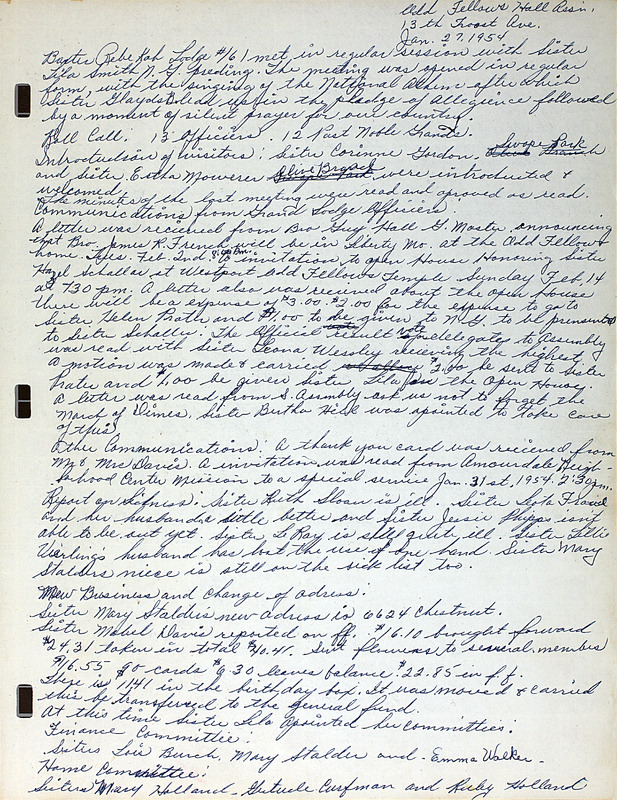 Odd Fellows Hall Assn.
13th Troost Ave.
Jan. 27, 1954
Baxter Rebekah Lodge #161 met in regular session with Sister
Lela Smith N.G. presding. The meeting was opened in regular
form, with the singing of the National Anthem after which
Sister Gladys led us in the pledge of Allegience followed
by a moment of silent prayer for our country.
Roll Call: 13 Officers. 12 Past Noble Grands.
Introctudsion of visitors: Sister Corinne Gordon, Swope Park
and Sister Ertha Mowerer Olive Branch were introducted &
welcomed.
The minutes of the last meeting were read and aproved as read.
Communications from Grand Lodge Officers:
A letter was recieved from Bro Guy Hall G. Master, announcing
that Bro. James R. French will be in Liberty Mo. at the Odd Fellows
home Tues. Feb. 2nd. 8:00 P.m. invitation to open House Honoring Sister
Hazel Schaller at Westport Odd Fellows Temple Sunday Feb. 14
at 7:30 pm. A letter also was recieved about the Open House
there will be a expense of $3.00. $2.00 for the expense to go to
Sister Helen Bates and $1.00 to be given to N.G. to be presented
to Sister Schaller. The Official vote delegates to Assembly
was read with Sister Leona Wessley recieving the highest.
A motion was made & carried $2.00 be sent to Sister
Bates and $1.00 be given Sister Lela for the Open House.
A letter was read from S. Assembly ask us not to forget the
March of Dimes. Sister Bertha Hill was apointed to take care
of this.
Other Communications: A thank you card was recieved from
Mr & Mrs Davis. A invitation was read from Amourdale Neigh-
borhood Center Mission to a special service Jan. 31st, 1954. 2:30 pm.
Report on Sickness: Sister Ruth Sloan is ill. Sister
and her husband a little better and Sister Jessie Phipps isn't
able to be out yet. Sister LeRay is still quite ill. Sister
husband has lost the use of one hand. Sister Mary
Stalders niece is still on the sick list too.
New Business and change of adress:
Sister Mary Stalders new adress is 6624 Chestnut.
Sister Mabel Davis reported on f.f. $16.10 brought forward
$24.31 taken in total $40.41. Sent flowers to several members
$16.55 go cards $ .30 leaves balance $22.85 in f.f.
There is 1141 in the birthday box. It was moved & carried
this be transfered to the general fund.
At this time Sister Lela apointed her committies:
Finance Committee:
Sisters Lois Burch, Mary Stalder and Emma Walker.
Home Committee:
Sisters Mary Holland, Gertrude Curfman and Ruby Holland